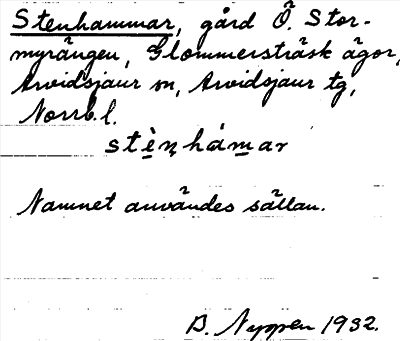 Stenhammar, gård Ö. Stor-
myrängen, Glommersträsk ägor,
Arvidsjaur sn, Arvidsjaur tg,
Norrb. l.
stè̱ṇhámar
Namnet användes sällan.
1932.